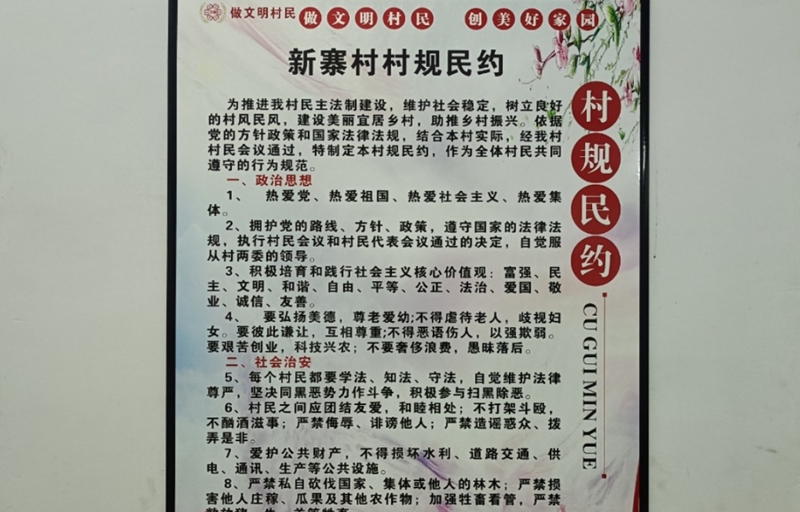 做文明村民
做文明村民 创美好家园
新寨村村规民约
为推进我村民主法制建设，维护社会稳定，树立良好
的村风民风，建设美丽宜居乡村，助推乡村振兴。依据
党的方针政策和国家法律法规，结合本村实际，经我村
村民会议通过，特制定本村规民约，作为全体村民共同
遵守的行为规范。
一、政治思想
1、 热爱党、热爱祖国、热爱社会主义、热爱集
体。
2、拥护党的路线、方针、政策，遵守国家的法律法
规，执行村民会议和村民代表会议通过的决定，自觉服
从村两委的领导。
3、积极培育和践行社会主义核心价值观：富强、民
主、文明、和谐、自由、平等、公正、法治、爱国、敬
业、诚信、友善。
4、 要弘扬美德，尊老爱幼;不得虐待老人，歧视妇
女。要彼此谦让，互相尊重;不得恶语伤人，以强欺弱。
要艰苦创业，科技兴农；不要奢侈浪费，愚昧落后。
二、社会治安
5、每个村民都要学法、知法、守法，自觉维护法律
尊严，坚决同黑恶势力作斗争，积极参与扫黑除恶。
6、村民之间应团结友爱，和睦相处；不打架斗殴，
不酗酒滋事；严禁侮辱、诽谤他人；严禁造谣惑众、拨
弄是非。
7、爱护公共财产，不得损坏水利、道路交通、供
电、通讯、生产等公共设施。
8、严禁私自砍伐国家、集体或他人的林木；严禁损
害他人庄稼、瓜果及其他农作物；加强牲畜看管，严禁
村规民约
CU GUI MIN YUE